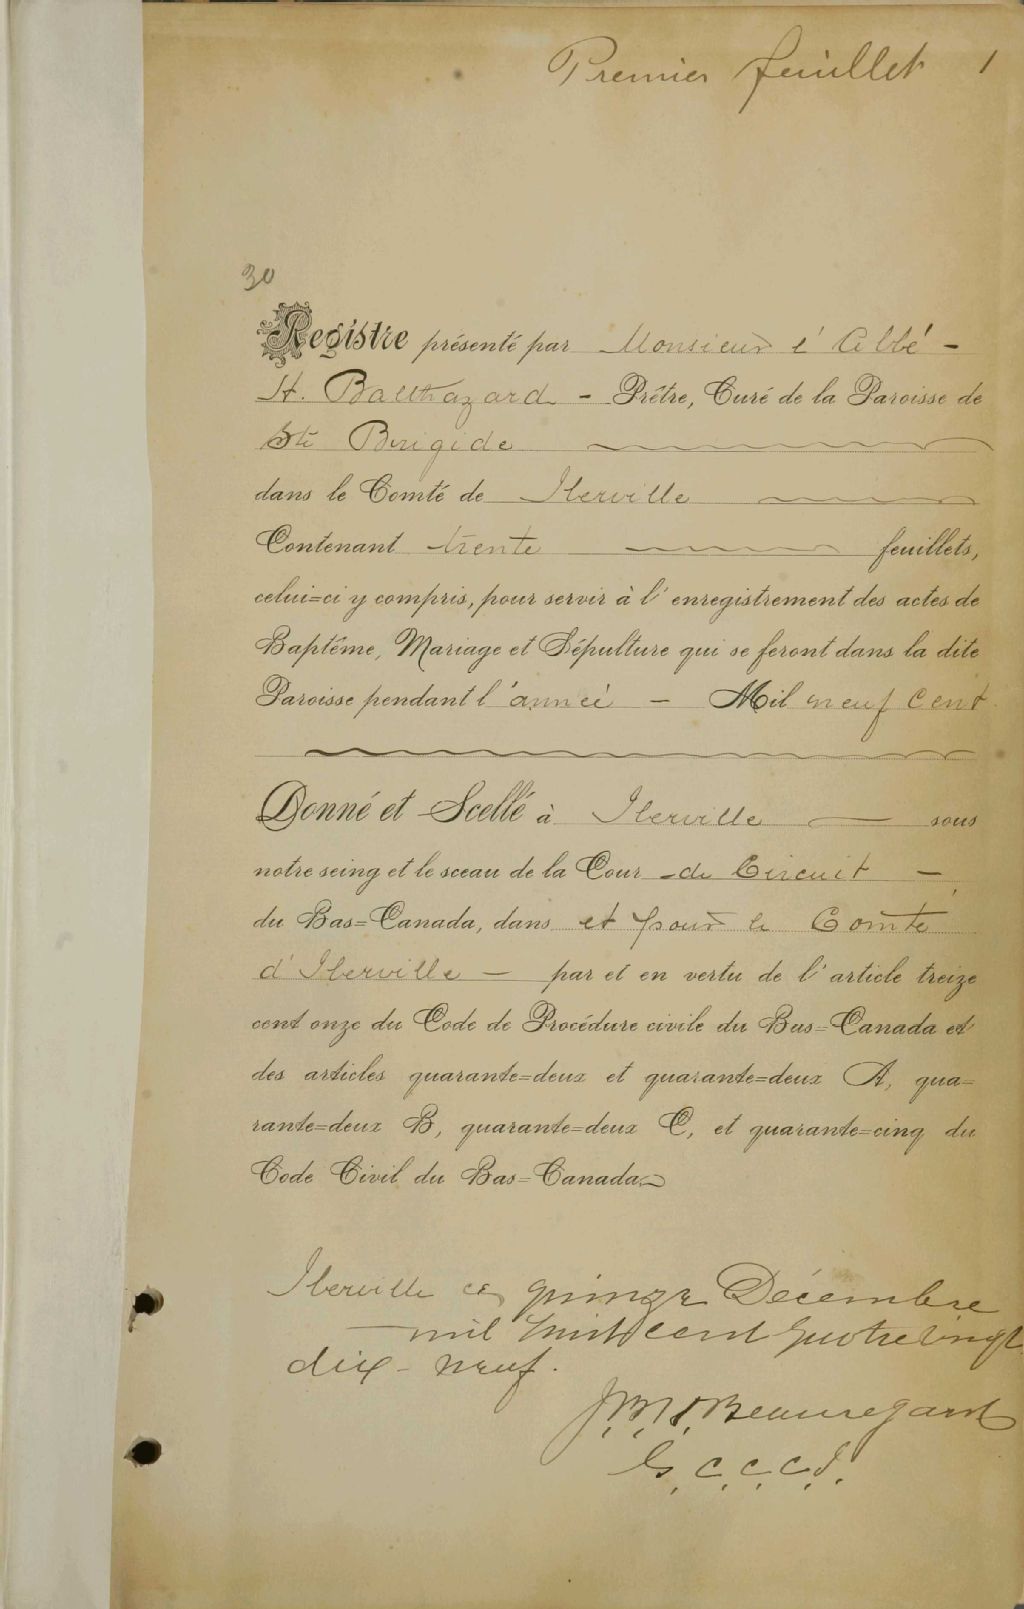 Premier feuillet 1
30
Registre présenté par Monsieur l'Abbé -
H. Balthazard - Prêtre, Curé de la Paroisse de
Ste Brigide
dans le Comté de Iberville
Contenant trente feuillets,
celui=ci y compris, pour servir à l'enregistrement des actes de
Baptême, Mariage et Sépulture qui se feront dans la dite
Paroisse pendant l'année - Mil neuf cent
Donné et Scellé à Iberville — sous
notre seing et le sceau de la Cour de Circuit -
du Bas=Canada, dans et pour le Comté
d'Iberville - par et en vertu de l'article treize
cent onze du Code de Procédure civile du Bas=Canada et
des articles quarante=deux et quarante=deux A, qua=
rante=deux B, quarante=deux C, et quarante=cinq du
Code Civil du Bas=Canada.
Iberville ce quinze Décembre
mil huit cent quatrevingt
dix-neuf.
Beauregard
G. C. C. C. I.